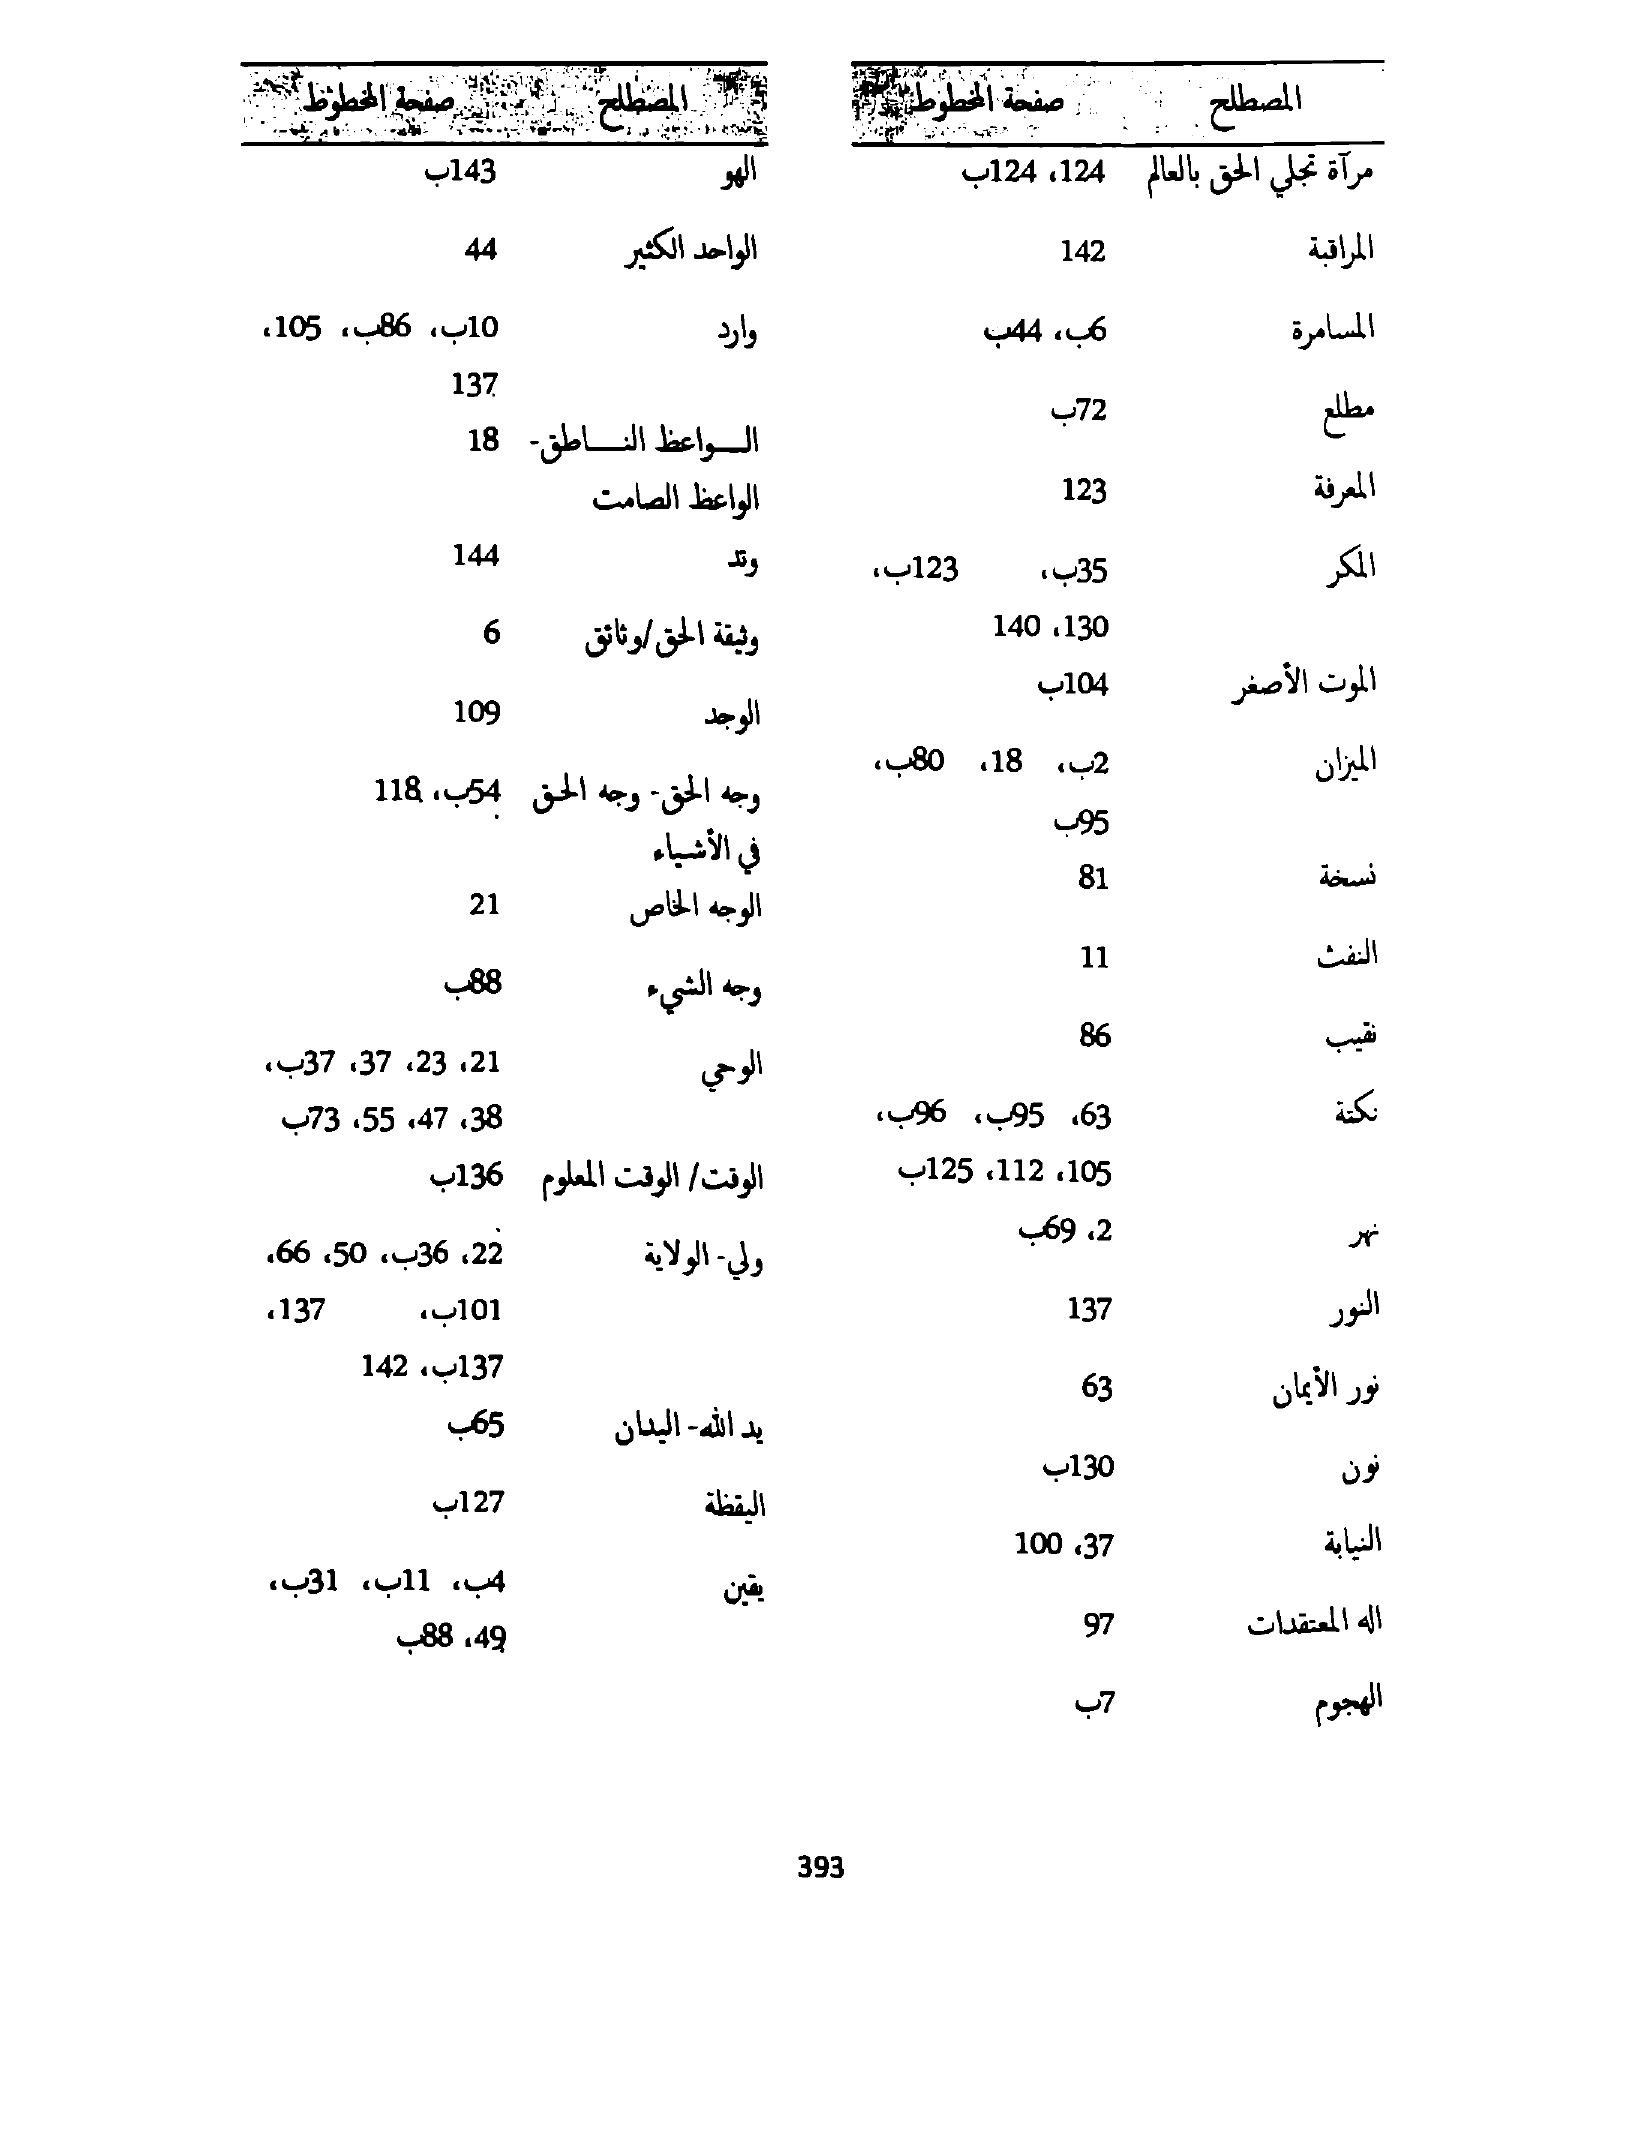 المصطلح صفحة المخطوط
مرآة تجلي الحق بالعالم 124، 124ب
المراقبة 142
المسامرة 6ب، 44ب
مطلع 72ب
المعرفة 123
المكر 35ب، 123ب،
130، 140
الموت الأصغر 104ب
الميزان 2ب، 18، 80ب،
95ب
نسخة 81
النفث 11
نقيب 86
نكتة 63، 95ب، 96ب،
105، 112، 125ب
نهر 2، 69ب
النور 137
نور الأيمان 63
نون 130ب
النيابة 37، 100
اله المعتقدات 97
الهجوم 7ب
المصطلح صفحة المخطوط
الهو 143ب
الواحد الكثير 44
وارد 10ب، 86ب، 105،
137
الـــواعظ النـــاطق- 18
الواعظ الصامت
وتد 144
وثيقة الحق/وثائق 6
الوجد 109
وجه الحق- وجه الحق 54ب، 118
في الأشياء
الوجه الخاص 21
وجه الشيء 88ب
الوحي 21، 23، 37، 37ب،
38، 47، 55، 73ب
الوقت/ الوقت المعلوم 136ب
ولي- الولاية 22، 36ب، 50، 66،
101ب، 137،
137ب، 142
يد الله- اليدان 65ب
اليقظة 127ب
يقين 4ب، 11ب، 31ب،
49، 88ب
393